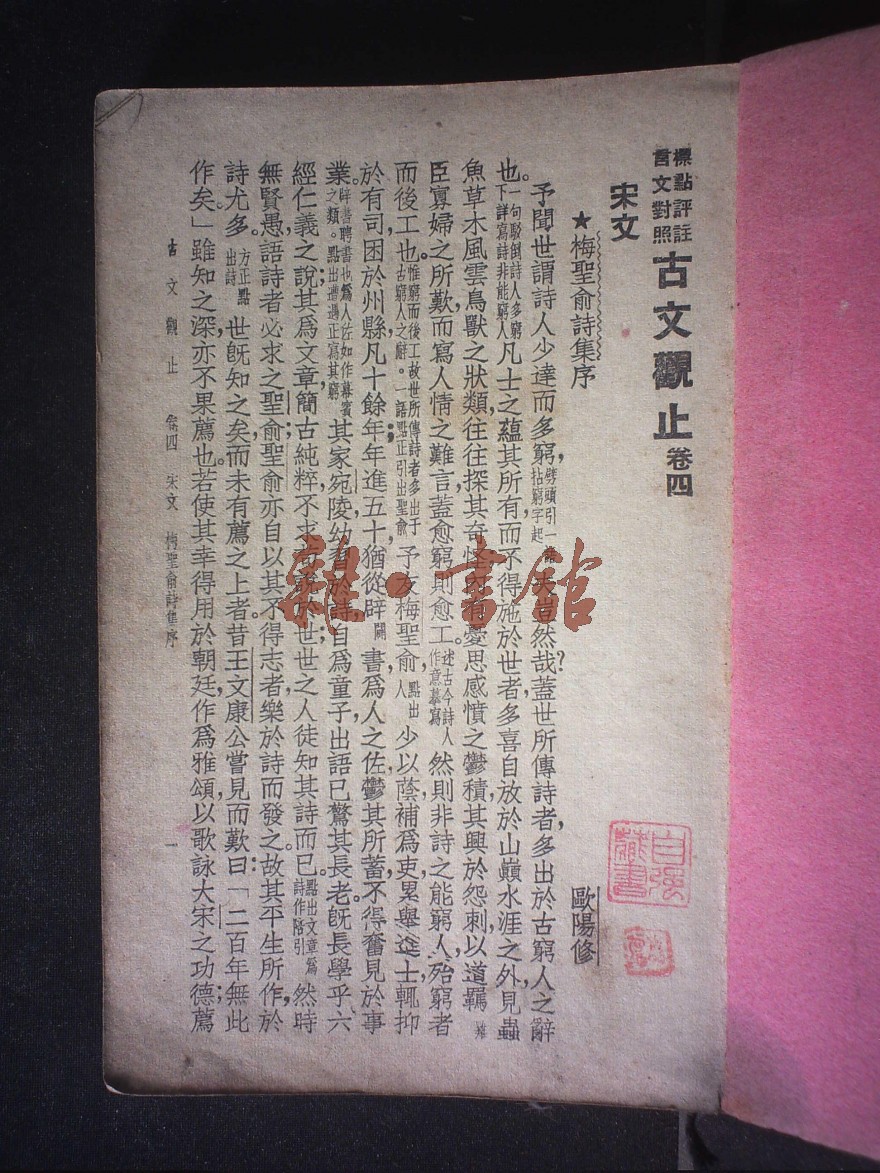 標點評註
言文對照
古文觀止 卷四
宋文
★梅聖俞詩集序
歐陽修
予聞世謂詩人少達而多窮,劈頭引一語拈窮字起夫豈然哉?蓋世所傳詩者,多出於古窮人之辭
也。一句駁倒詩人多窮下詳寫詩非能窮人凡士之蘊其所有而不得施於世者,多喜自放於山巔水涯之外,見蟲
魚草木風雲鳥獸之狀類,往往探其奇怪;內有憂思感憤之鬱積,其興於怨刺,以道羈雞
臣寡婦之所歎,而寫人情之難言,蓋愈窮則愈工。述古今詩人作意摹寫然則非詩之能窮人,殆窮者
而後工也。惟窮而後工故世所傳詩者多出于古窮人之辭。一語點正引出聖俞予友梅聖俞,點出人少以蔭補爲吏,累舉進士,輒抑
於有司,困於州縣,凡十餘年;年進五十,猶從辟闢書,爲人之佐,鬱其所蓄,不得奮見於事
業。辟書聘書也爲人佐如作幕賓之類。點出遭遇正寫其窮其家宛陵,幼習於詩;自爲童子,出語已驚其長老;旣長,學乎六
經仁義之說,其爲文章,簡古純粹,不求苟說於世,世之人徒知其詩而已。點出文章爲詩作陪引然時
無賢愚,語詩者必求之聖俞;聖俞亦自以其不得志者,樂於詩而發之;故其平生所作,於
詩尤多。方正點出詩世旣知之矣,而未有薦之上者。昔王文康公嘗見而歎曰:「二百年無此
作矣」雖知之深,亦不果薦也。若使其幸得用於朝廷,作爲雅頌,以歌詠大宋之功德,薦
古文觀止 卷四 宋文 梅聖俞詩集序 一
自强
藏書
雜·書館